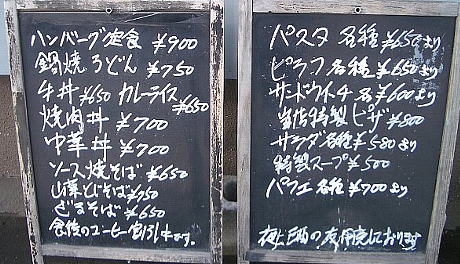 ハンバーグ定食 ¥900
鍋焼うどん ¥750
牛丼 ¥650 カレーライス ¥650
焼肉丼 ¥700
中華丼 ¥700
ソース焼そば ¥650
山菜とじそば ¥750
ざるそば ¥650
食後のコーヒー
パスタ 各種 ¥650より
ピラフ 各種 ¥650より
サンドウイッチ 各 ¥600より
当店特製 ピザ ¥800
サラダ 各種 ¥580より
特製スープ ¥500
パフェ 各種 ¥700より